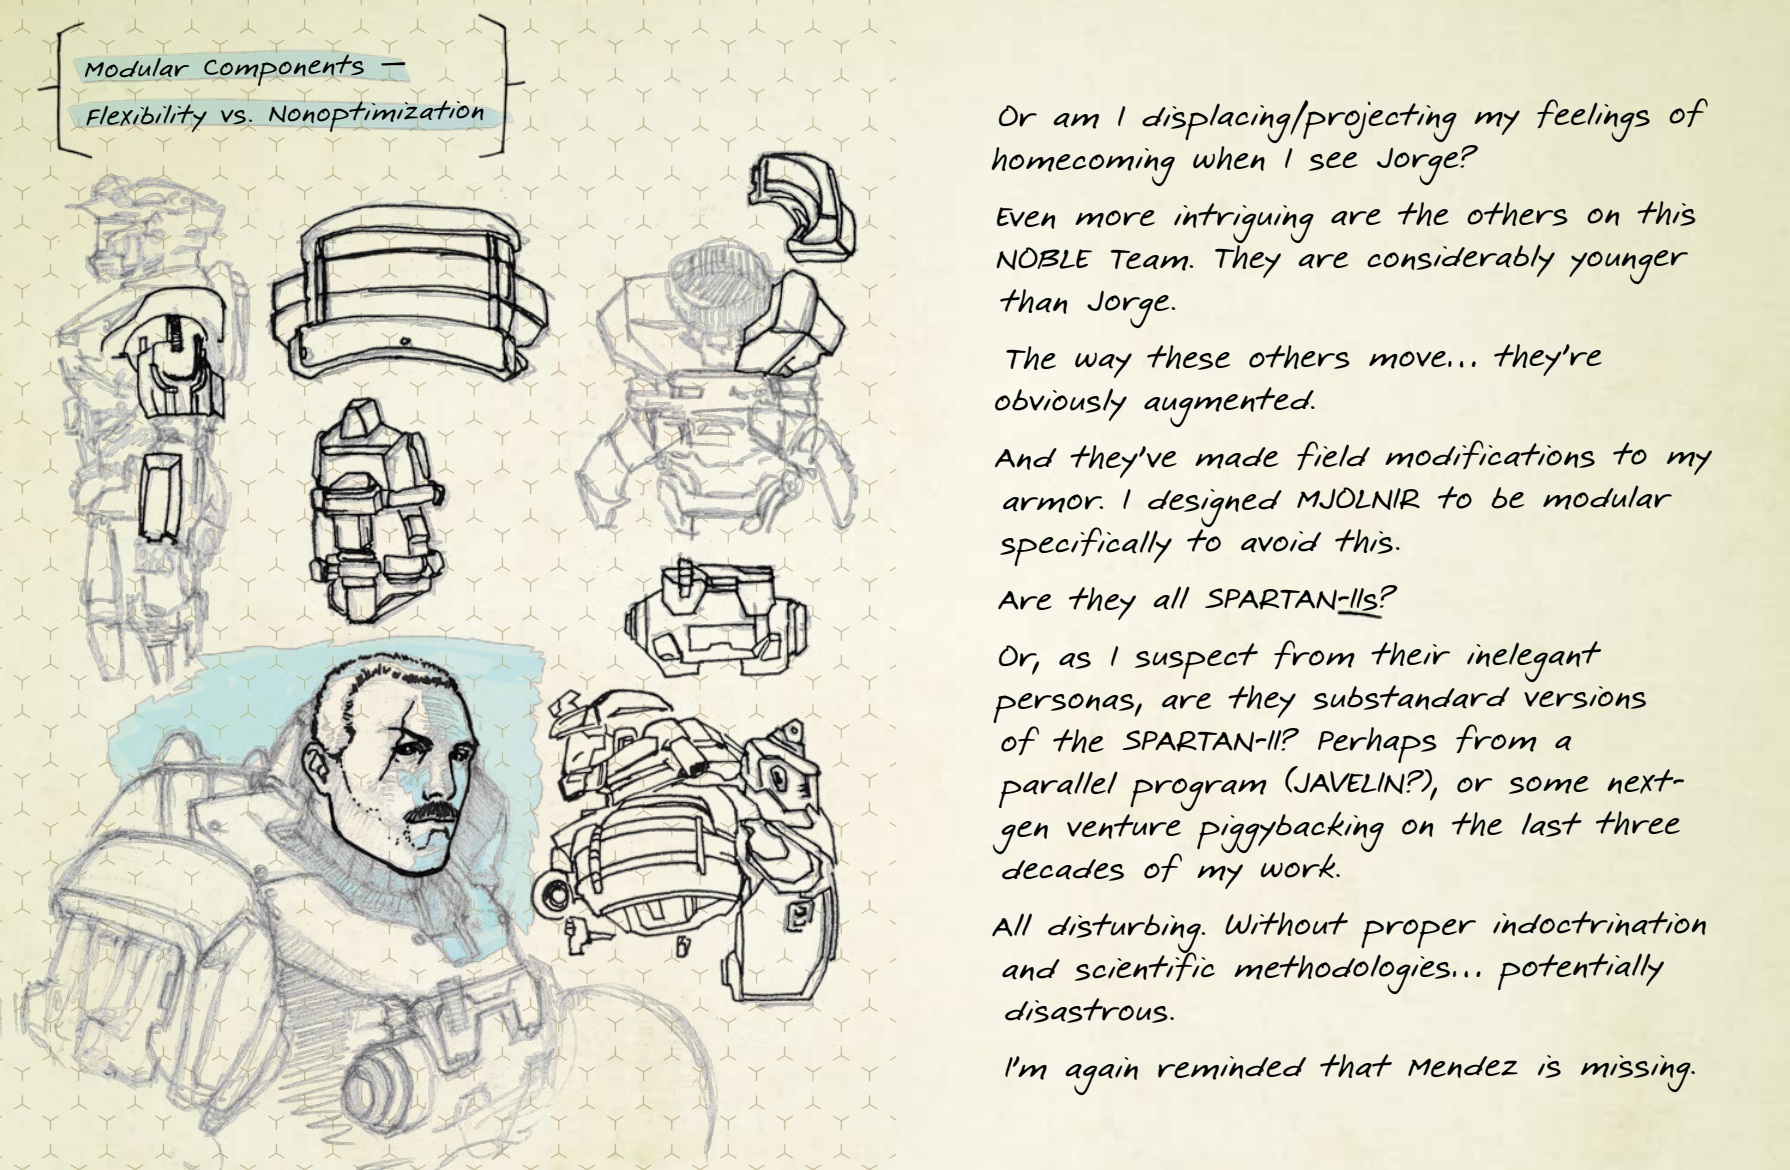 Modular Components —
Flexibility vs. Nonoptimization
Or am I displacing/projecting my feelings of
homecoming when I see Jorge?
Even more intriguing are the others on this
NOBLE Team. They are considerably younger
than Jorge.
The way these others move... they're
obviously augmented.
And they've made field modifications to my
armor. I designed MJOLNIR to be modular
specifically to avoid this.
Are they all SPARTAN-IIs?
Or, as I suspect from their inelegant
personas, are they substandard versions
of the SPARTAN-II? Perhaps from a
parallel program (JAVELIN?), or some next-
gen venture piggybacking on the last three
decades of my work.
All disturbing. Without proper indoctrination
and scientific methodologies... potentially
disastrous.
I'm again reminded that Mendez is missing.